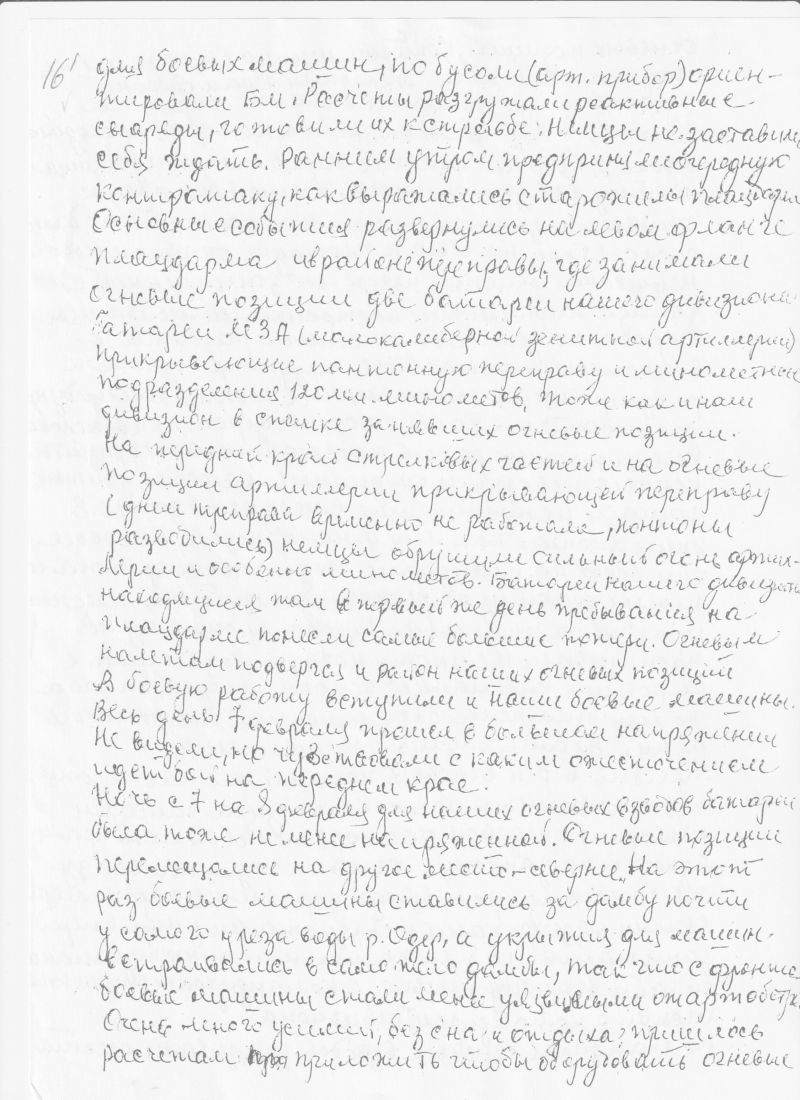 16'
для боевых машин, по бусоли (арт. прибор) ориен-
тировали Б.М. Расчеты разгружали реактивные
снаряды, готовили их к стрельбе. Немцы не заставили
себя ждать. Ранним утром предприняли очередную
контратаку, как выражались старожилы плацдарма
Основные события развернулись на левом фланге
плацдарма и в районе переправы, где занимали
огневые позиции две батареи нашего дивизиона
Батареи МЗА (малокалиберной зенитной артиллерии)
прикрывающие понтонную переправу и минометные
подразделения 120 мм. минометов, тоже как и наш
дивизион в спешке занявших огневые позиции.
На передний край стрелковых частей и на огневые
позиции артиллерии прикрывающей переправу
(днем преправа временно не работала, понтоны
разводились) немцы обрушили сильный огонь артил-
лерии и особенно минометов. Батареи нашего дивизиона
находящиеся там в первый же день пребывания на
плацдарме понесли самые большие потери. Огневым
налетам подвергся и район наших огневых позиций
В боевую работу вступили и наши боевые машины.
Весь день 7 февраля прошел в большом напряжении
Не видели, но чувствовали с каким ожесточением
идет бой на переднем крае.
Ночь с 7 на 8 февраля для наших огневых взводов батареи
была тоже не менее напряженной. Огневые позиции
перемещались на другое место - севернее. На этот
раз боевые машины ставились за дамбу почти
у самого уреза воды р. Одер, а укрытия для машин
встраивались в само тело дамбы, так что с фронта
боевые машины стали менее уязвимыми от артобстр.
Очень много усилий, без сна и отдыха, пришлось
расчетам приложить чтобы оборудовать огневые